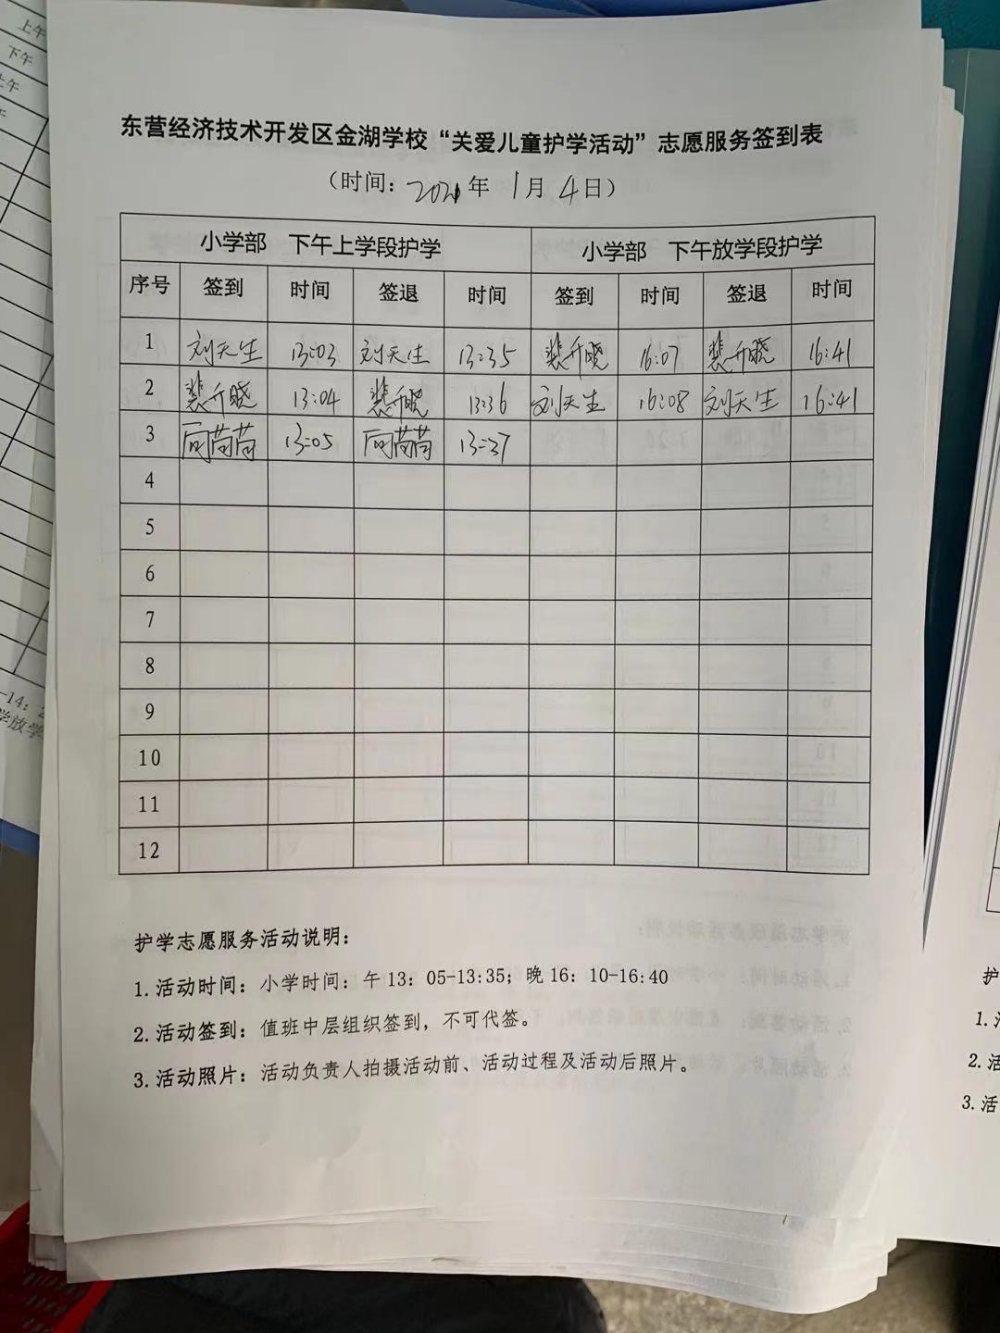 上午
下午
东营经济技术开发区金湖学校“关爱儿童护学活动”志愿服务签到表
（时间：2021年 1月 4日）
小学部 下午上学段护学 小学部 下午放学段护学
序号 签到 时间 签退 时间 签到 时间 签退 时间
1 刘天生 13:03 刘天生 13:35 裴升晓 16:07 裴升晓 16:41
2 裴升晓 13:04 裴升晓 13:36 刘天生 16:08 刘天生 16:41
3 苘苘 13:05 苘苘 13:37
4
5
6
7
8
9
10
11
12
护学志愿服务活动说明：
1.活动时间：小学时间：午13：05-13:35；晚16：10-16:40
2.活动签到：值班中层组织签到，不可代签。
3.活动照片：活动负责人拍摄活动前、活动过程及活动后照片。
-14：
学放学
护
1.
2.活
3.活